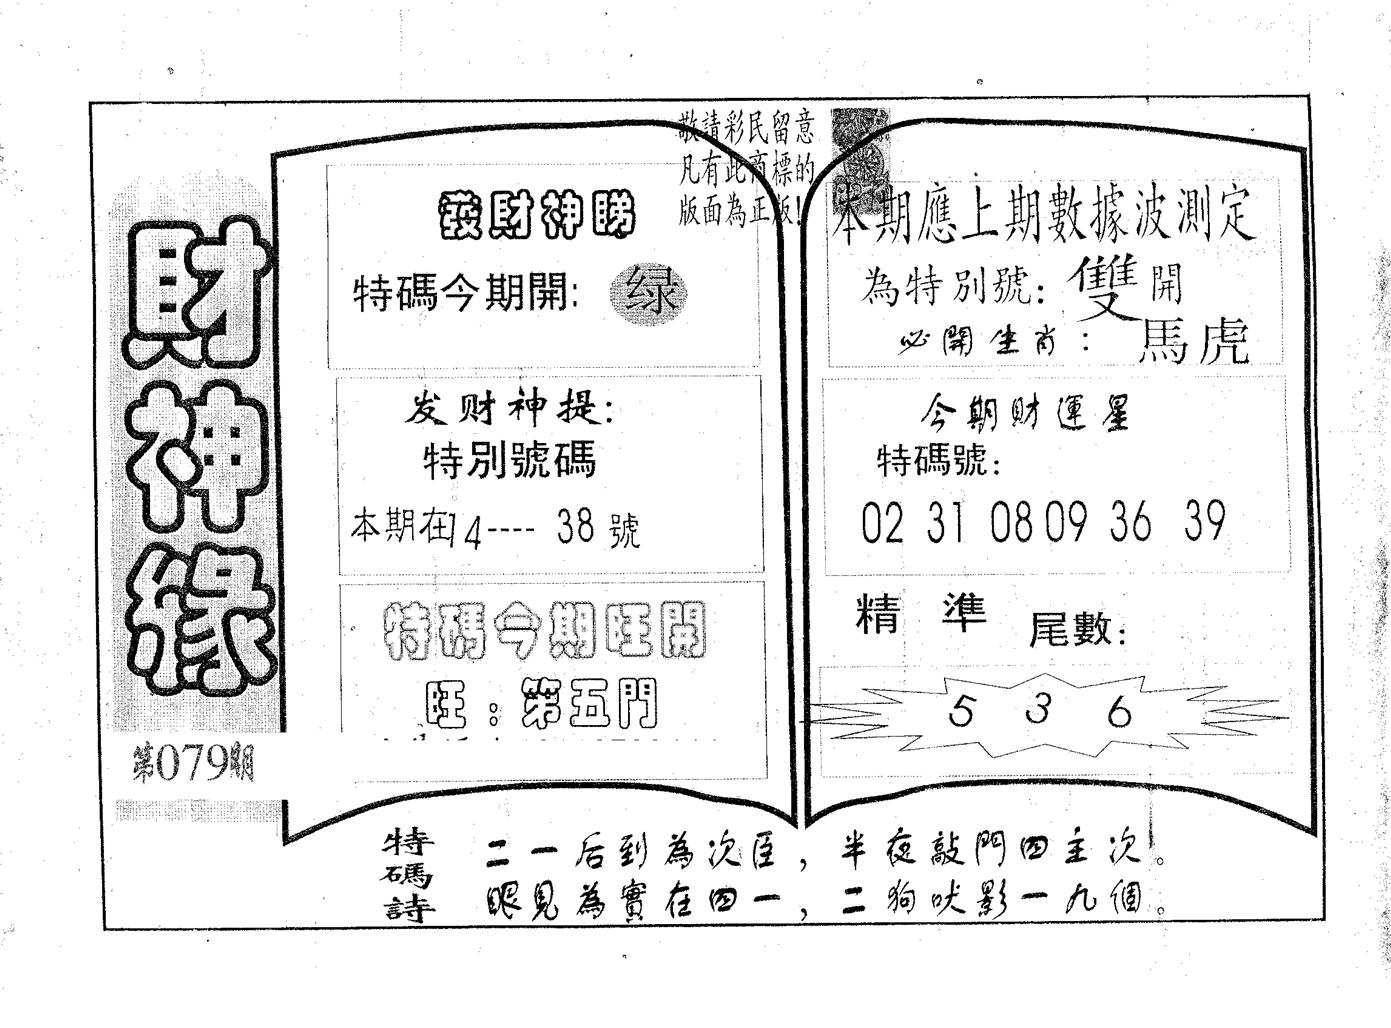 財神緣
第079期
敬請彩民留意
凡有此商標的
版面為正版!
發財神睇
特碼今期開: 绿
发财神提:
特別號碼
本期在14---- 38 號
特碼今期旺開
旺:第五門
本期應上期數據波測定
為特別號: 雙 開
必開生肖: 馬虎
今期財運星
特碼號:
02 31 08 09 36 39
精 準 尾數:
5 3 6
特碼詩
二一后到為次臣,半夜敲門四主次。
眼見為實在四一,二狗吠影一九個。